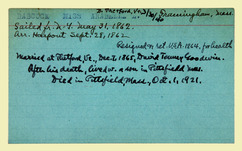 b. Thetford, Vt. 3/30/40
BABCOCK, MISS Framingham, Mass.
Sailed f. N.Y. May 31, 1862.
Arr. Harpoot Sept. 28, 1862
Resigned 1864, for health
Married at Thetford, Vt., Dec. 7, 1865, David Tenney Goodwin.
After his death, lived w. a son in Pittsfield, Mass.
Died in Pittsfield, Mass., Oct. 1, 1921.